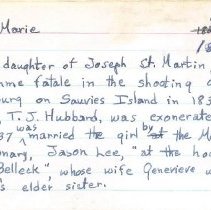 Marie
daughter of Joseph St. Martin
me fatale in the shooting
urg on Sauvies Island in 183
, T. J. Hubbard, was exonerat
37 was married the girl by at the M
onary, Jason Lee, "at the ho
Belleck", whose wife Genevieve w
's elder sister.